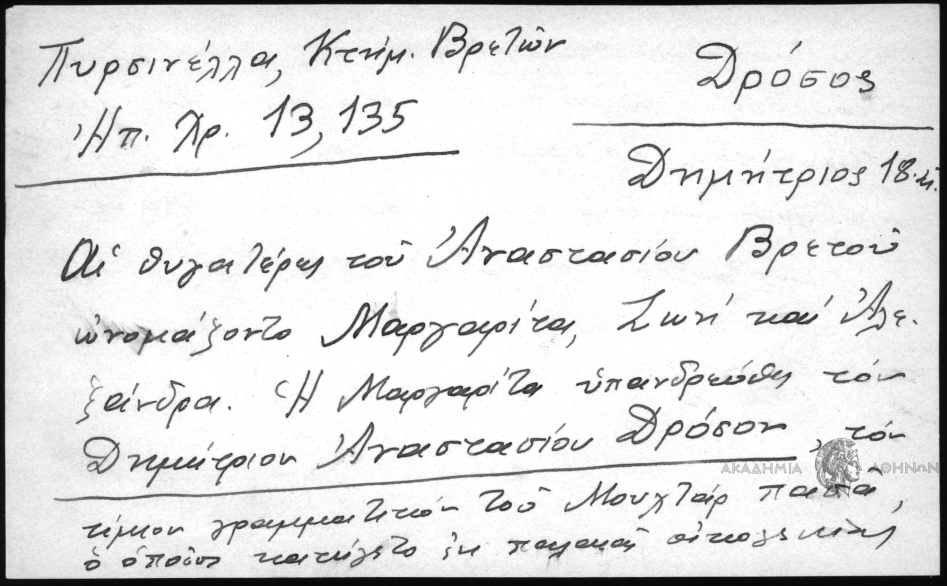 Πυρσινέλλα, Κτήμ. Βρετῶν
Ἠπ. Χρ. 13, 135
Δρόσος
Δημήτριος 18.
Αἱ θυγατέρες τοῦ Ἀναστασίου Βρετοῦ
ὠνομάζοντο Μαργαρίτα, Ζωή καί Ἀλε-
ξάνδρα. Ἡ Μαργαρίτα ὑπανδρεύθη τόν
Δημήτριον Ἀναστασίου Δρόσον, τόν
τίμιον γραμματικόν τοῦ Μουχτάρ πασᾶ,
ὁ ὁποῖος κατήγετο ἐκ παλαιᾶς οἰκογενείας
ΑΚΑΔΗΜΙΑ ΑΘΗΝΩΝ